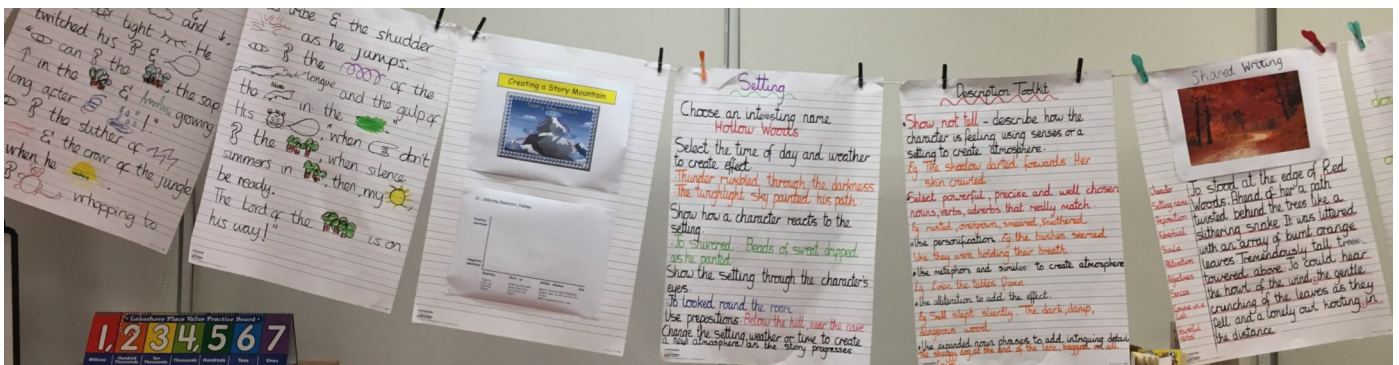 tight and
twitched his & . He
can & the
in the & . the sap
long after & growing
!"
& the slither of
& the crow of the jungle
when he
whopping to
& the shudder
as he jumps.
& the of the
tongue and the gulp of
the in the .
His "when don't
& the , when silence
summers in , then, my ,
be ready.
The Lord of the is on
his way!"
Creating a Story Mountain
Setting
Choose an interesting name
Hollow Woods
Select the time of day and weather
to create effect
Thunder rumbled through the darkness
The twighlight sky painted his path.
Show how a character reacts to the
setting.
Jo shivered. Beads of sweat dripped
as he panted.
Show the setting through the character's
eyes.
Jo looked round the room.
Use prepositions Below the hill, near the cave
Change the setting, weather or time to create
a new atmosphere as the story progresses
Description Toolkit
Show, not tell - describe how the
character is feeling using senses or a
setting to create atmosphere.
Eg. The shadow darted forwards. Her
skin crawled
Select powerful, precise and well chosen
nouns, verbs, adverbs that really match.
Eg. rusted, overgrown, smeared, smothered
Use personification Eg the bushes seemed
like they were holding their breath.
Use metaphors and similes to create atmosphere
Eg. Even the tables froze
Use alliteration to add the effect.
Eg Sall slept silently. The dark, damp,
dangerous wood.
Use expanded noun phrases to add intriguing detail
The shaggy dog at the end of the lane, begged or all
Shared Writing
Character
Setting name
Preposition
Adverbial
Simile
Alliteration
Adjectives
Senses
Powerful
Verbs
Jo stood at the edge of Red
Woods. Ahead of her a path
twisted behind the trees like a
slithering snake. It was littered
with an array of burnt orange
leaves. Tremendously tall trees
towered above. Jo could hear
the howl of the wind, the gentle
crunching of the leaves as they
fell and a lonely owl hooting in
the distance.
Lakeshore Place Value Practice Board
1,234,567
Millions Hundred Thousands Ten Thousands Thousands Hundreds Tens Ones